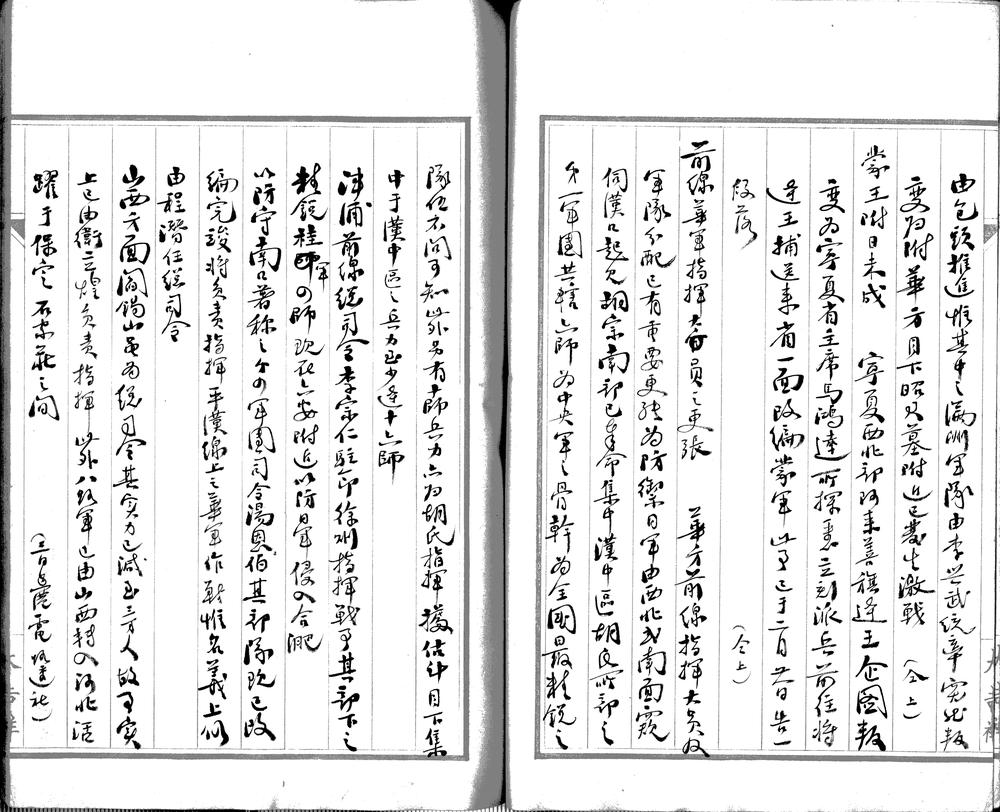 由包頭推進惟其中之滿洲軍隊由李興武統率突然叛
變歸附華方目下昭君墓附近已發生激戰　（仝上）
蒙王附日未成　　寧夏西北部阿拉善旗達王企圖叛
變為寧夏省主席馬鴻逵所探悉立刻派兵前往將
達王捕送來省一面改編蒙軍此事已于二月廿日告一
段落　　（仝上）
前線華軍指揮大員之更張　　華方前線指揮大員及
軍隊分配已有重要更張為防禦日軍由西北或南面窺
伺漢口起見胡宗南部已奉命集中漢中區胡氏所部之
第一軍團共轄六師為中央軍之骨幹為全國最精銳之
隊伍不問可知此外另有十師兵力亦归胡氏指揮據估計目下集
中于漢中區之兵力至少達十六師
津浦前線總司令李宗仁駐節徐州指揮戰事其部下之
精銳桂軍四師現在六安附近以防日軍侵入合肥
以防守南口著稱之第四軍團司令湯恩伯其部隊現已改
編完竣將負責指揮平漢線上之華軍作戰惟名義上仍
由程潛任總司令
山西方面閻錫山雖為總司令其實力已減至三万人故事實
上已由衛立煌負責指揮此外八路軍已由山西轉入河北活
躍于保定石家莊之間　　（三日 電 社）